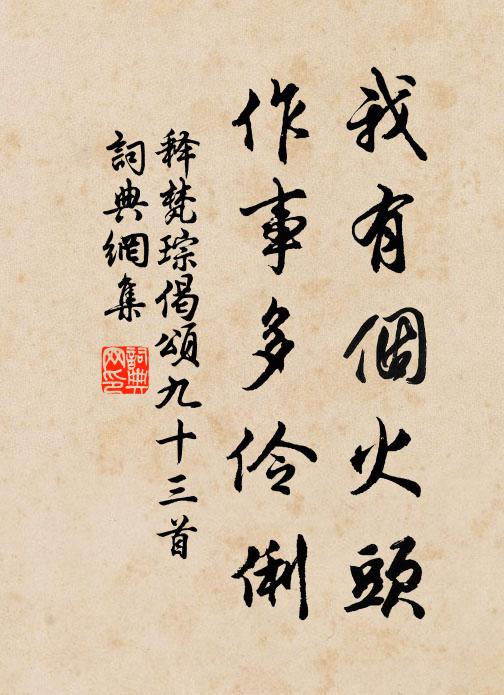 我有個火頭
作事多伶俐
释梵琮偈頌九十三首
詞典網集
詞典网印